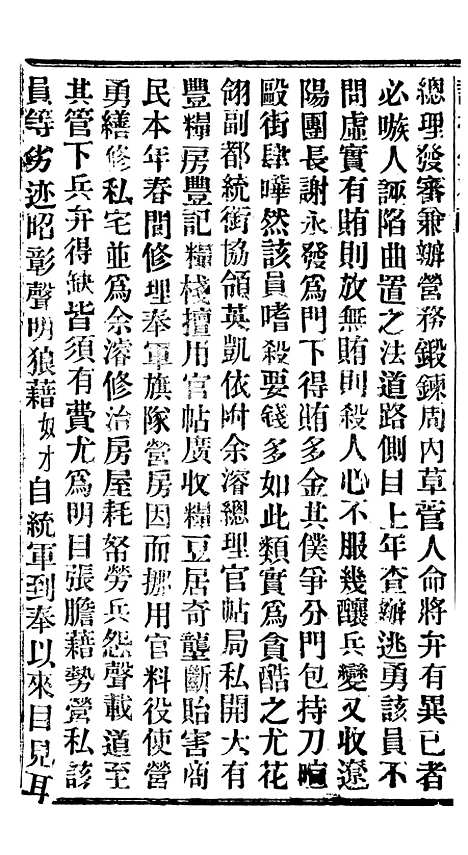 總理發審兼辦營務鍛鍊周內草菅人命將弁有異已者
必嗾人誣陷曲置之法道路側目上年查辦逃勇該員不
問虛實有賄則放無賄則殺人心不服幾釀兵變又收遼
陽團長謝永發爲門下得賄多金其僕爭分門包持刀喧
毆街肆曄然該員嗜殺要錢多如此類實爲貪酷之尤花
翎副都統銜協領英凱依附余濬總理官帖局私開大有
豐糧房豐記糧棧擅用官帖廣收糧豆居奇壟斷貽害商
民本年春間修理奉軍旗隊營房因而挪用官料役使營
勇繕修私宅並爲余濬修治房屋耗帑勞兵怨聲載道至
其管下兵弁得缺皆須有費尤爲明目張膽藉勢營私該
員等劣迹昭彰聲明狼藉奴才自統軍到奉以來目見耳